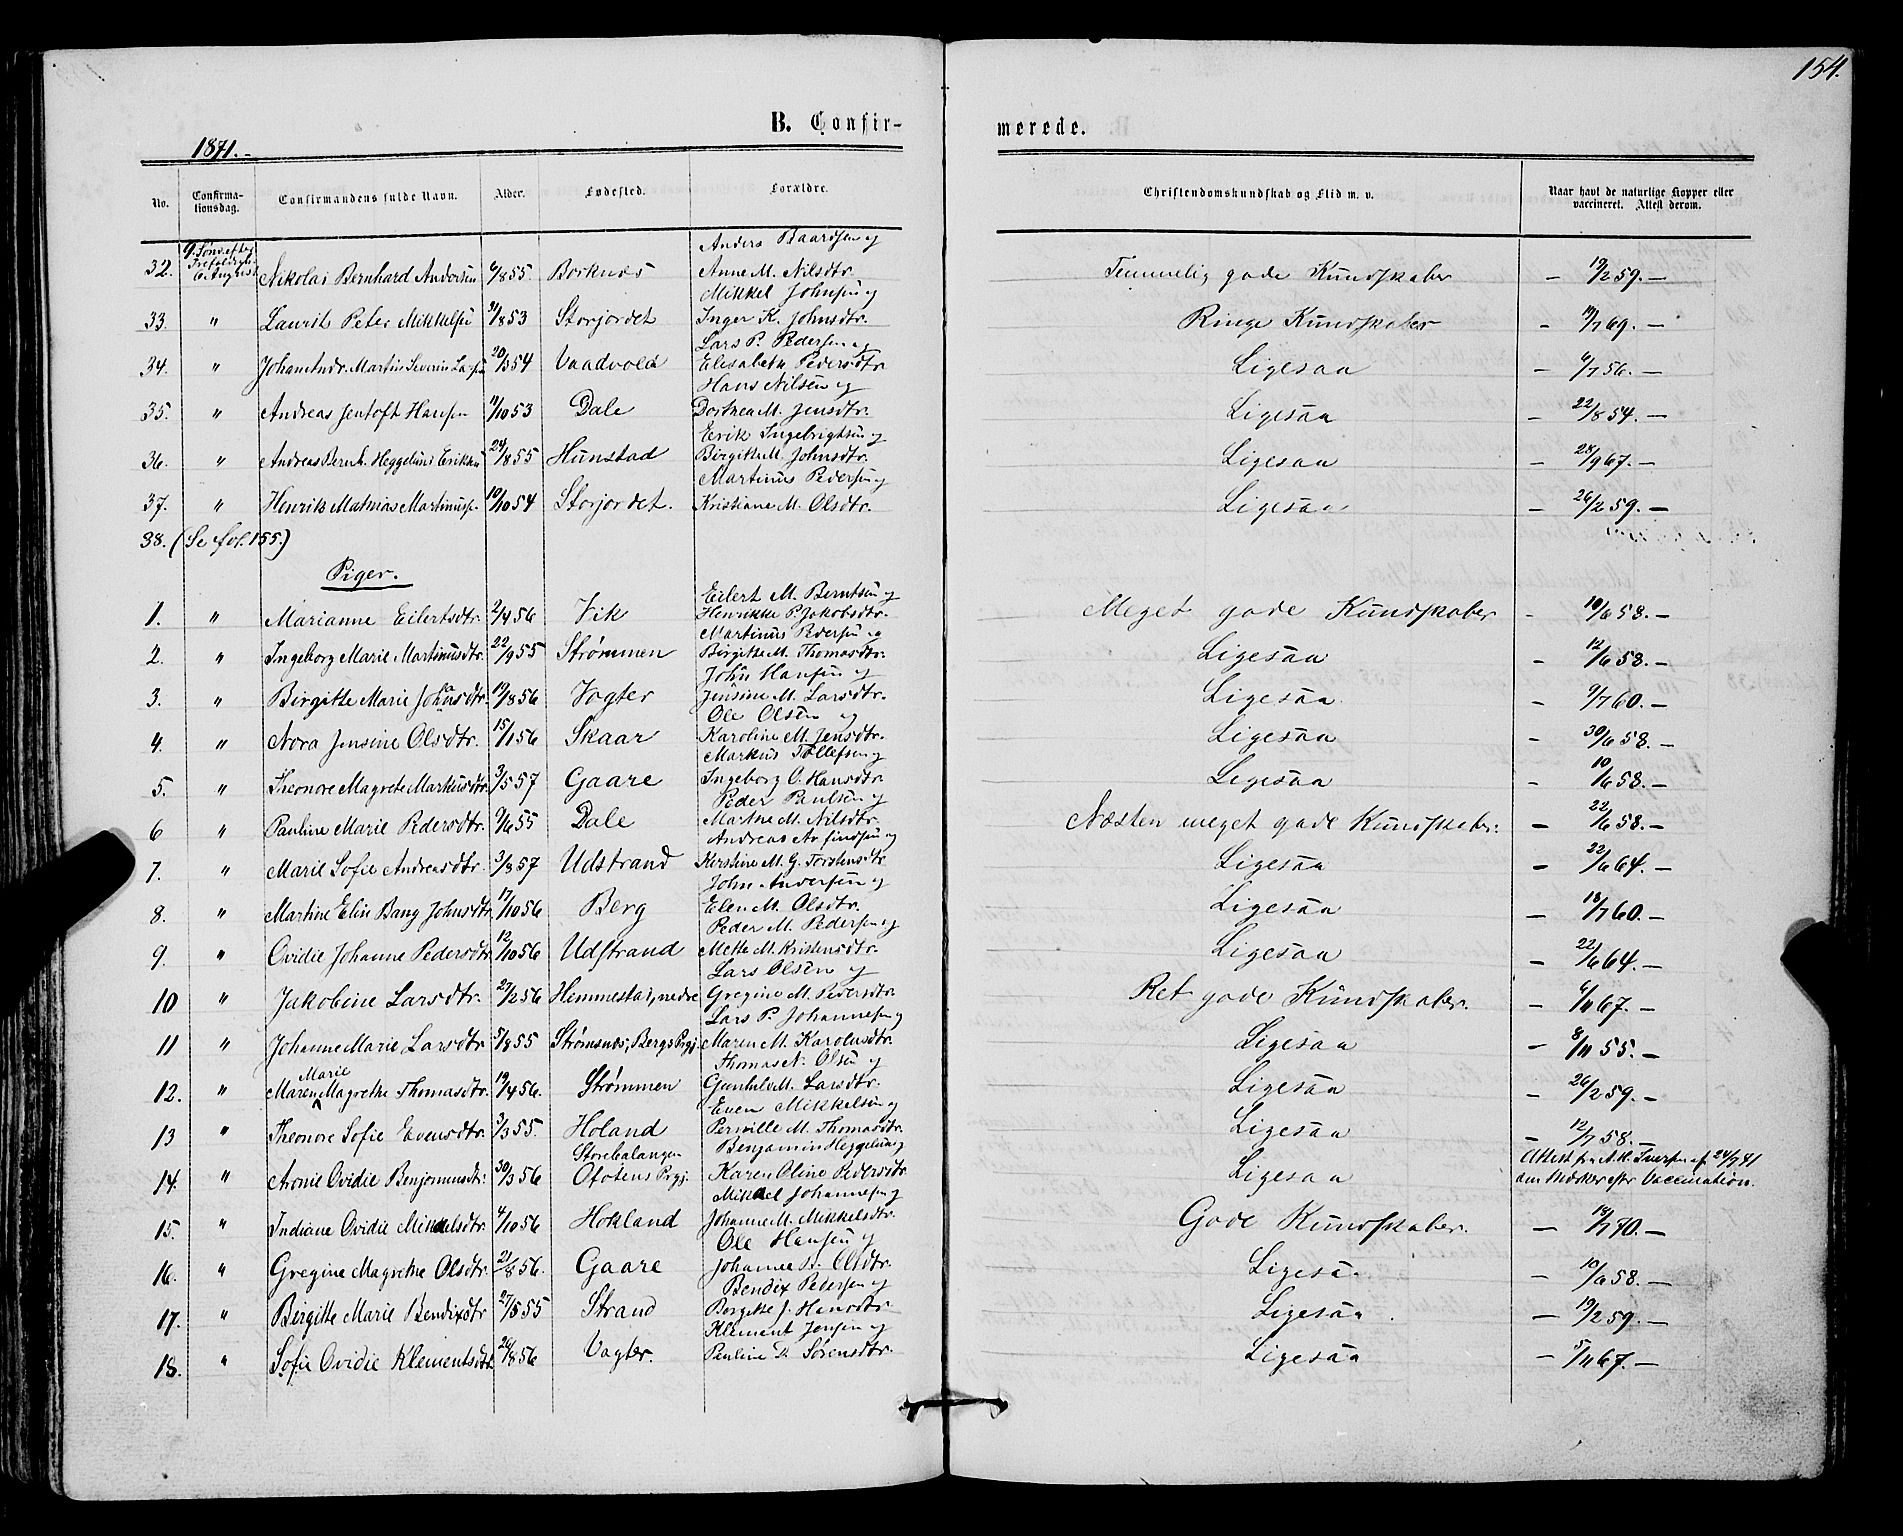 154.
B. Confir-
merede.
1871.-
No.
Confirma-
tionsdag.
Confirmandens fulde Navn.
Alder.
Fødested.
Forældre.
Christendomskundskab og Flid m. v.
Naar havt de naturlige Kopper eller
vaccineret. Attest derom.
Anders Baardsen og
32. 9. Sønd. efter Trefoldigh. 6. August Nikolai Bernhard Andersen 6/8 55 Borknæs Anne M. Nilsdtr. Temmelig gode Kundskaber - 19/2 59. -
Mikkel Johnsen og
33. " Laurit Peter Mikkelsen 31/8 53 Storjordet Inger K. Johnsdtr. Ringe Kundskaber - 19/7 69. -
Lars P. Pedersen og
34. " Johan Andr. Martin Severin 20/3 54 Vaadvold Elisabeth Pedersdtr. Ligesaa - 6/7 56. -
Hans Nilsen og
35. " Andreas Jentoft Hansen 11/10 53 Dale Dorthea M. Jensdtr. Ligesaa - 22/8 54. -
Eerik Ingebrigtsen og
36. " Andreas Bernh. Heggelund Eriksen 24/8 55 Hunstad Birgitte M. Johnsdtr. Ligesaa - 28/9 67. -
Martinus Pedersen og
37. " Henrik Mathias Martinuss. 10/10 54 Storjordet. Kristiane M. Olsdtr. Ligesaa - 26/2 59. -
38. (Se fol. 155.)
Piger.
Eilert M. Berntsen og
1. " Marianne Eilertsdtr. 2/4 56 Vik Henrikke P. Jakobsdtr. Meget gode Kundskaber - 10/6 58. -
Martinus Pedersen og
2. " Ingeborg Marie Martinusdtr. 22/9 55 Strømmen Birgitte M. Thomasdtr. Ligesaa - 12/6 58. -
John Hansen og
3. " Birgitte Marie Johnsdtr. 19/8 56 Vogter Jensine M. Larsdtr. Ligesaa - 9/7 60. -
Ole Olsen og
4. " Nora Jensine Olsdtr. 15/1 56 Skaar Karoline M. Jensdtr. Ligesaa - 30/6 58. -
Markus Tollefsen og
5. " Theonore Magrete Markusdtr. 3/5 57 Gaare Ingeborg O. Hansdtr. Ligesaa - 10/6 58. -
Peder Paulsen og
6 " Pauline Marie Pedersdtr. 9/6 55 Dale Marthe M. Nilsdtr. Næsten meget gode Kundskaber. - 22/6 58. -
Andreas Arfindsen og
7. " Marie Sofie Andreasdtr. 3/8 57 Udstrand Kirstine M. G. Torstensdtr. Ligesaa - 22/6 64. -
John Andersen og
8. " Martine Elin Bang Johnsdtr. 17/10 56 Berg Elen M. Olsdtr. Ligesaa - 18/7 60. -
Peder M. Pedersen og
9. " Ovidie Johanne Pedersdtr. 12/10 56 Udstrand Mette M. Kristensdtr. Ligesaa - 22/6 64. -
Lars Olsen og
10 " Jakobine Larsdtr. 27/2 56 Hemmestad, nedre Gregine M. Pedersdtr. Ret gode Kundskaber. - 6/11 67. -
Lars P. Johannesen og
11 " Johanne Marie Larsdtr. 5/8 55 Strømsnæs, Bergs Prgj. Maren M. Karolusdtr. Ligesaa - 8/11 55. -
Thomas N. Olsen og
12. " Maren Marie Magrethe Thomasdtr. 19/4 56. Strømmen Gunhild M. Larsdtr. Ligesaa - 26/2 59. -
Even Mikkelsen og
13 " Theonore Sofie Evensdtr. 3/3 55. Holand Pernille M. Thomasdtr. Ligesaa - 12/7 58. -
Benjamin Heggelund
14. " Arnie Ovidie Benjaminsdtr. 30/3 56 Storebalangen Ofotens Prgj. Karen Oline Pedersdtr. Ligesaa Attest fra A. H. Iversen af 24/7 71
om Mærker eftr. Vaccination.
Mikael Johannesen og
15. " Indiane Ovidie Mikaelsdtr. 4/10 56 Hokland Johanne M. Mikkelsdtr. Gode Kundskaber. - 18/7 70. -
Ole Hansen og
16. " Gregine Magrethe Olsdtr. 21/8 56. Gaare Johanne Olsdtr. Ligesaa - 10/6 58. -
Bendix Petersen og
17. " Birgitte Marie Bendixdtr. 27/5 55 Strand Birgitte J. Hansdtr. Ligesaa. - 19/2 59. -
Klement Jensen og
18. " Sofie Ovidie Klementsdtr. 26/8 56 Vagter. Pauline D. Sørensdtr. Ligesaa - 5/11 67. -